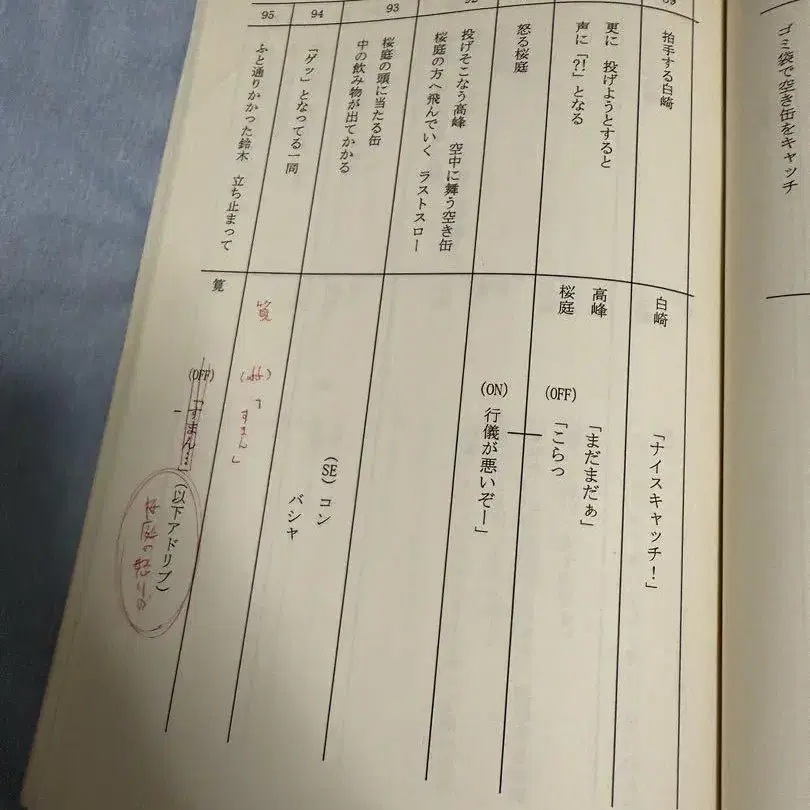 ゴミ袋で空き缶をキャッチ
拍手する白崎
白崎
「ナイスキャッチ!」
更に 投げようとすると
声に「?!」となる
高峰
「まだまだぁ」
桜庭
(OFF)
「こらっ
怒る桜庭
(ON)
行儀が悪いぞー」
92
投げそこなう高峰 空中に舞う空き缶
桜庭の方へ飛んでいく ラストスロー
93
桜庭の頭に当たる缶
中の飲み物が出てかかる
(SE) コン
バシャ
94
「ゲッ」となってる一同
筧
(off)
「すまん」
95
ふと通りかかった鈴木 立ち止まって
筧
(OFF)
「すまん…
(以下アドリブ)
桜庭の怒りが